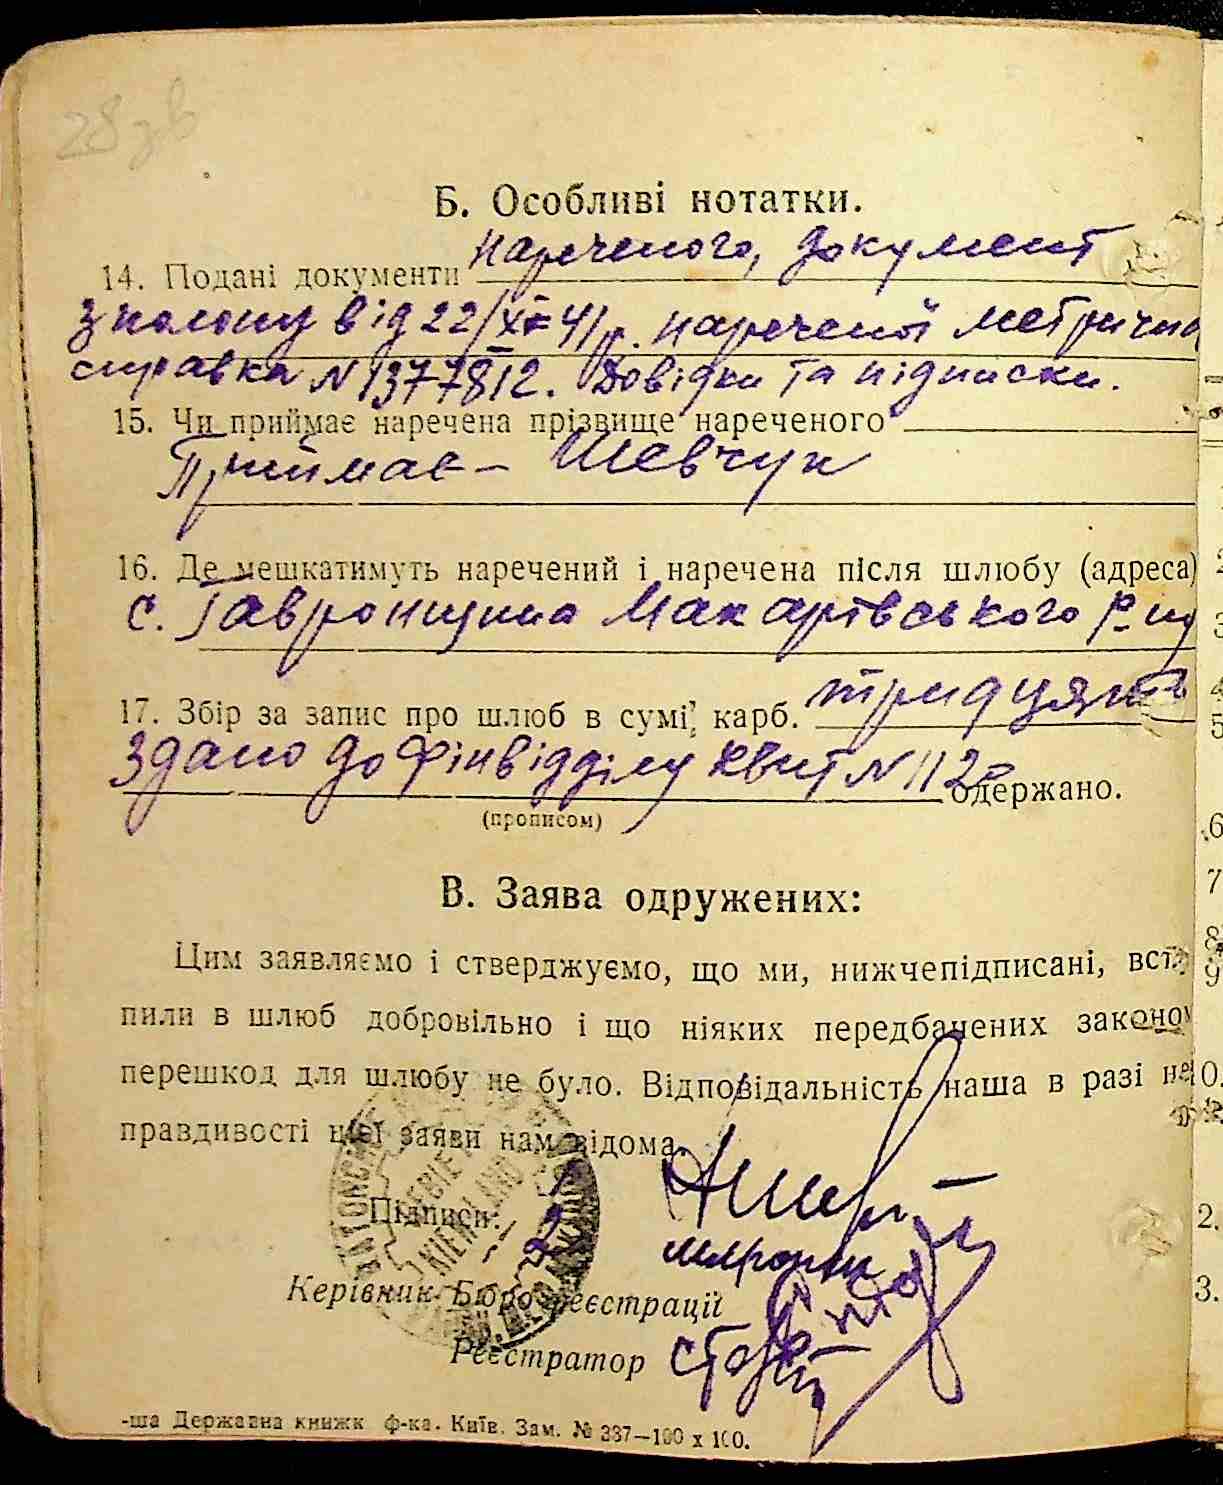 28 зв
Б. Особливі нотатки.
14. Подані документи нареченого, документ
з полону від 22/XI 41 р. нареченої метрична
справка № 1377812. Довідки та підписки.
15. Чи приймає наречена прізвище нареченого
Приймає – Шевчук
16. Де мешкатимуть наречений і наречена після шлюбу (адреса)
с. Гавронщина Макарівського р-ну
17. Збір за запис про шлюб в сумі, карб. тридцять
Здано до фінвідділу квит № 1120 одержано.
(прописом)
В. Заява одружених:
Цим заявляємо і стверджуємо, що ми, нижчепідписані, всту
пили в шлюб добровільно і що ніяких передбачених законом
перешкод для шлюбу не було. Відповідальність наша в разі не
правдивості цієї заяви нам відома.
Підписи:
Керівник Бюро реєстрації
Реєстратор
-ша Державна книжк ф-ка. Київ. Зам. № 387—100 x 100.